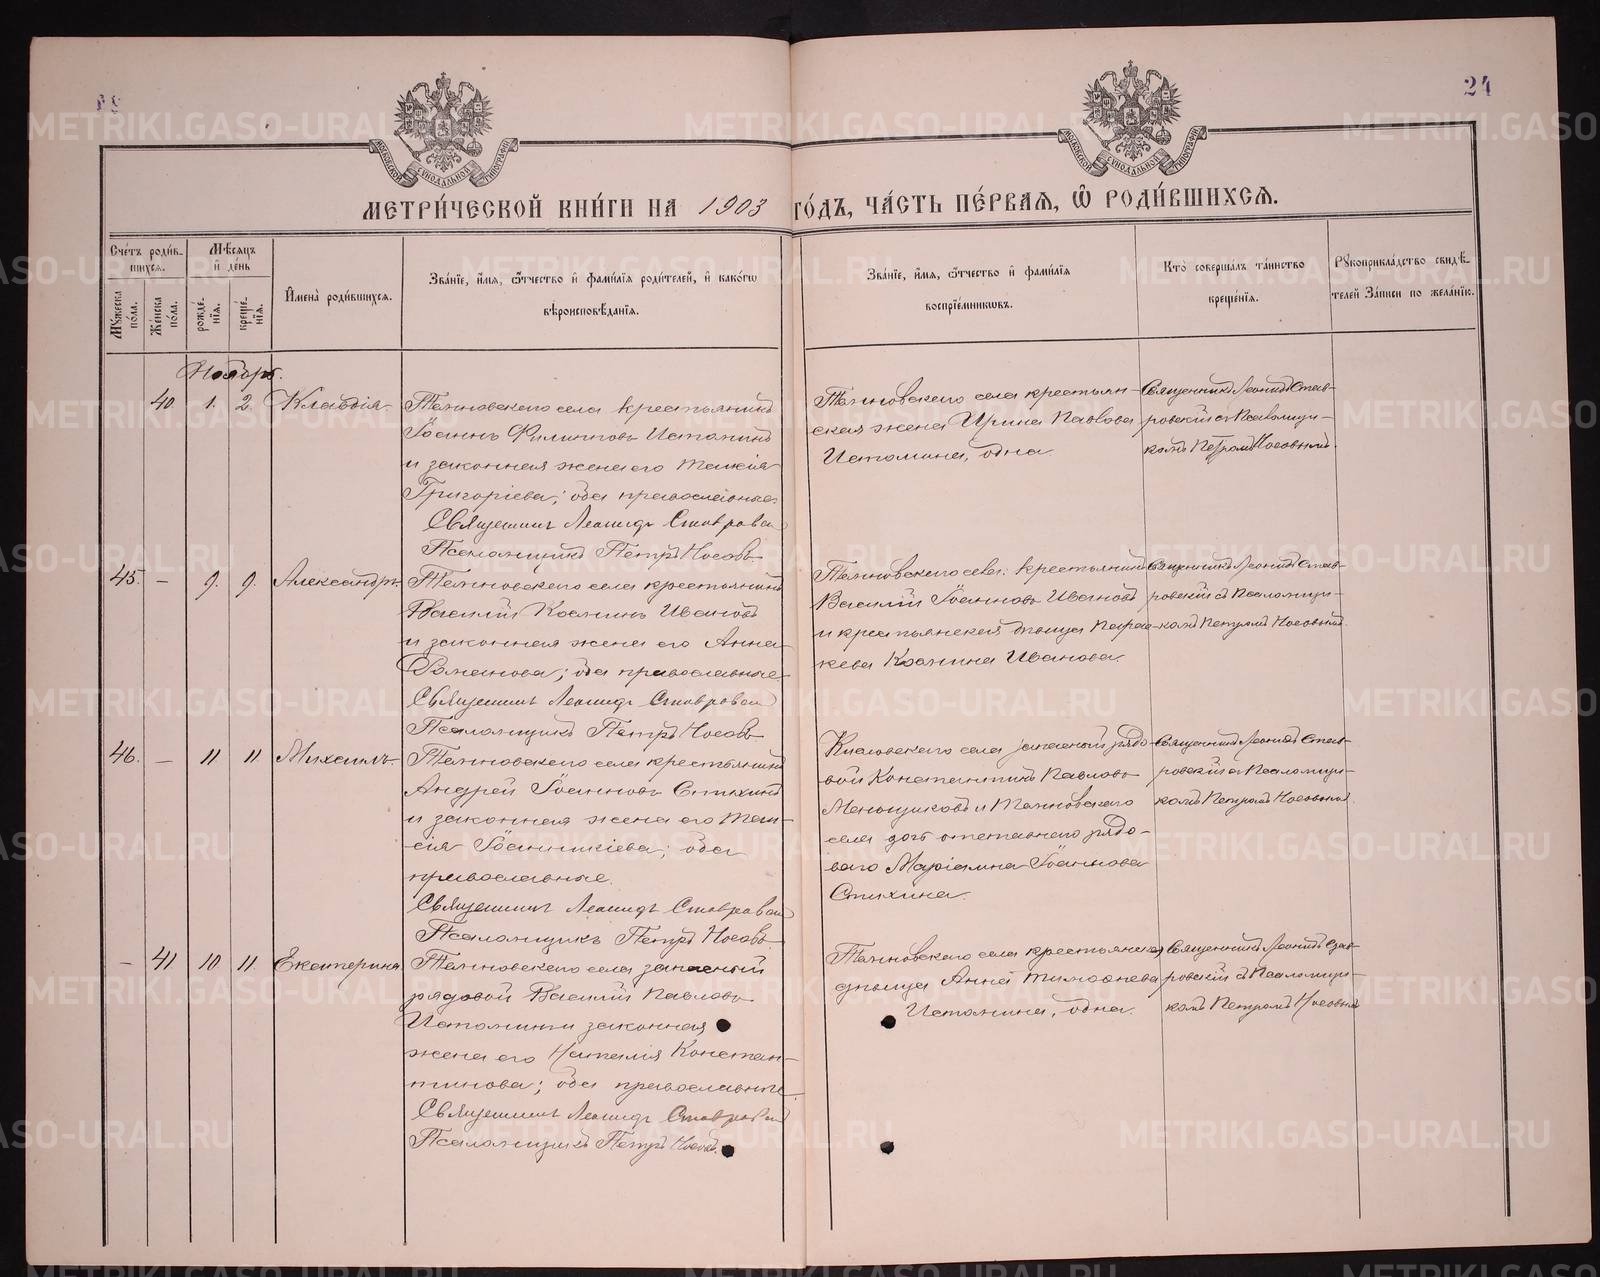 24
МОСКОВСКОЙ СѴНОДАЛЬНОЙ ТИПОГРАФІИ
МОСКОВСКОЙ СѴНОДАЛЬНОЙ ТИПОГРАФІИ
МЕТРИ́ЧЕСКОЙ КНИ́ГИ НА 1903 ГО́ДЪ, ЧА́СТЬ ПЕ́РВАЯ, Ѡ РОДИ́ВШИХСЯ.
Сче́тъ роди́в-
шихся.
Му́жеска по́ла.
Же́нска по́ла.
Мѣ́сяцъ
и҆ де́нь
рожде́-
нїя.
креще́-
нїя.
И҆мена̀ роди́вшихся.
Зва́нїе, и҆́мя, ѻ҆́тчество и҆ фами́лїя роди́телей, и҆ како́гѡ
вѣроисповѣ́данїя.
Зва́нїе, и҆́мя, ѻ҆́тчество и҆ фами́лїя
воспрїе́мникѡвъ.
Кто̀ соверша́лъ та́инство
креще́нїя.
Рꙋкоприкла́дство свидѣ́-
телей За́писи по жела́нїю.
Ноябрь.
40. 1. 2. Клавдія
Темновскаго села крестьянинъ
Іоаннъ Филипповъ Истоминъ
и законная жена его Таисія
Григоріева; оба православные.
Священникъ Леонидъ Ставровскій
Псаломщикъ Петръ Носовъ
Темновскаго села крестьян-
ская жена Ирина Павлова
Истомина, одна.
Священникъ Леонидъ Став-
ровскій съ Псаломщи-
комъ Петромъ Носовымъ.
45. – 9. 9. Александръ.
Темновскаго села крестьянинъ
Василій Косминъ Ивановъ
и законная жена его Анна
Романова; оба православные.
Священникъ Леонидъ Ставровскій
Псаломщикъ Петръ Носовъ
Темновскаго села крестьянинъ
Василій Іоанновъ Ивановъ
и крестьянская дѣвица Парас-
кева Космина Иванова.
Священникъ Леонидъ Став-
ровскій съ Псаломщи-
комъ Петромъ Носовымъ.
46. – 11 11 Михаилъ.
Темновскаго села крестьянинъ
Андрей Іоанновъ Стихинъ
и законная жена его Таи-
сія Іоанникіева; оба
православные.
Священникъ Леонидъ Ставровскій
Псаломщикъ Петръ Носовъ
Кисловскаго села запасный рядо-
вой Константинъ Павловъ
Меньщиковъ и Темновскаго
села дочь отставнаго рядо-
ваго Маріамна Іоаннова
Стихина.
Священникъ Леонидъ Став-
ровскій съ Псаломщи-
комъ Петромъ Носовымъ.
– 41. 10 11 Екатерина
Темновскаго села запасный
рядовой Василій Павловъ
Истоминъ и законная
жена его Наталія Констан-
тинова; оба православные.
Священникъ Леонидъ Ставровскій
Псаломщикъ Петръ Носовъ.
Темновскаго села крестьянская
дѣвица Анна Тимоѳеева
Истомина, одна.
Священникъ Леонидъ Став-
ровскій съ Псаломщи-
комъ Петромъ Носовымъ
METRIKI.GASO-URAL.RU